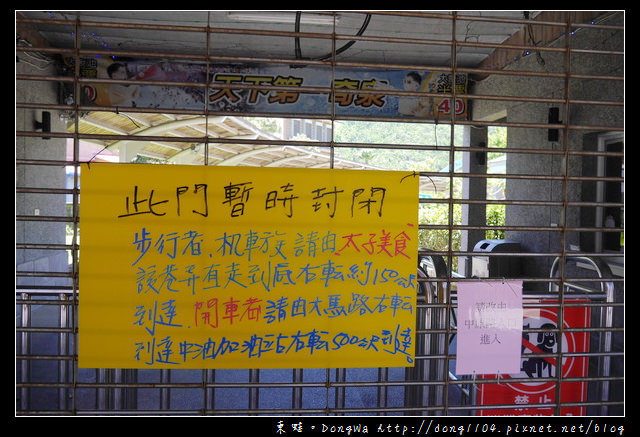 天下第一奇泉
40
此門暫時封閉
步行者、机車族請由太子美食
該巷弄直走到底右転約150公尺
到達. 開車者請由大馬路右転
到達中油加油站右転500公尺到達。
請改由
進入
禁止
東蛙。DongWa http://dong1104.pixnet.net/blog